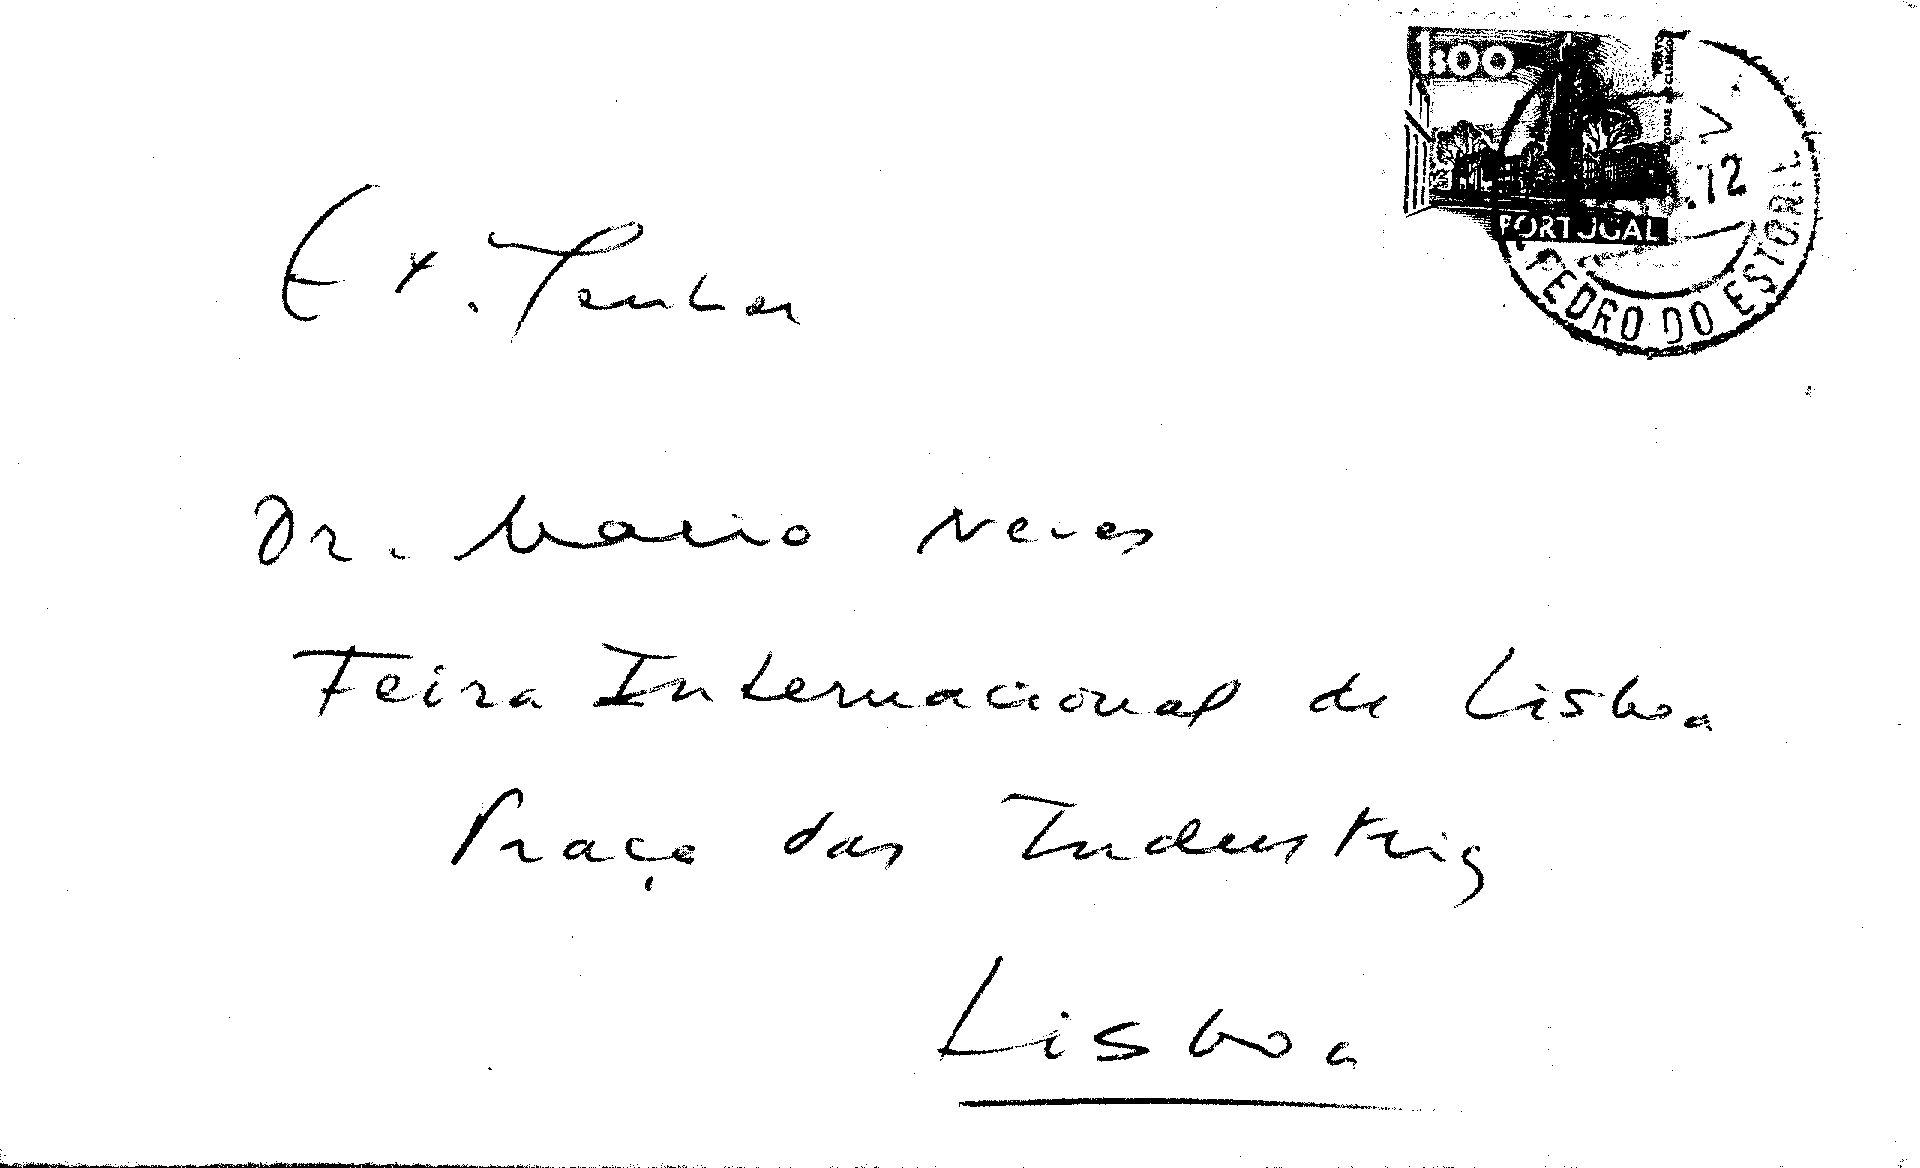 1$00
PORTUGAL
.72
PEDRO DO ESTORIL
Ex. Senhor
Dr. Mario Neves
Feira Internacional de Lisboa
Praça das Industrias
Lisboa